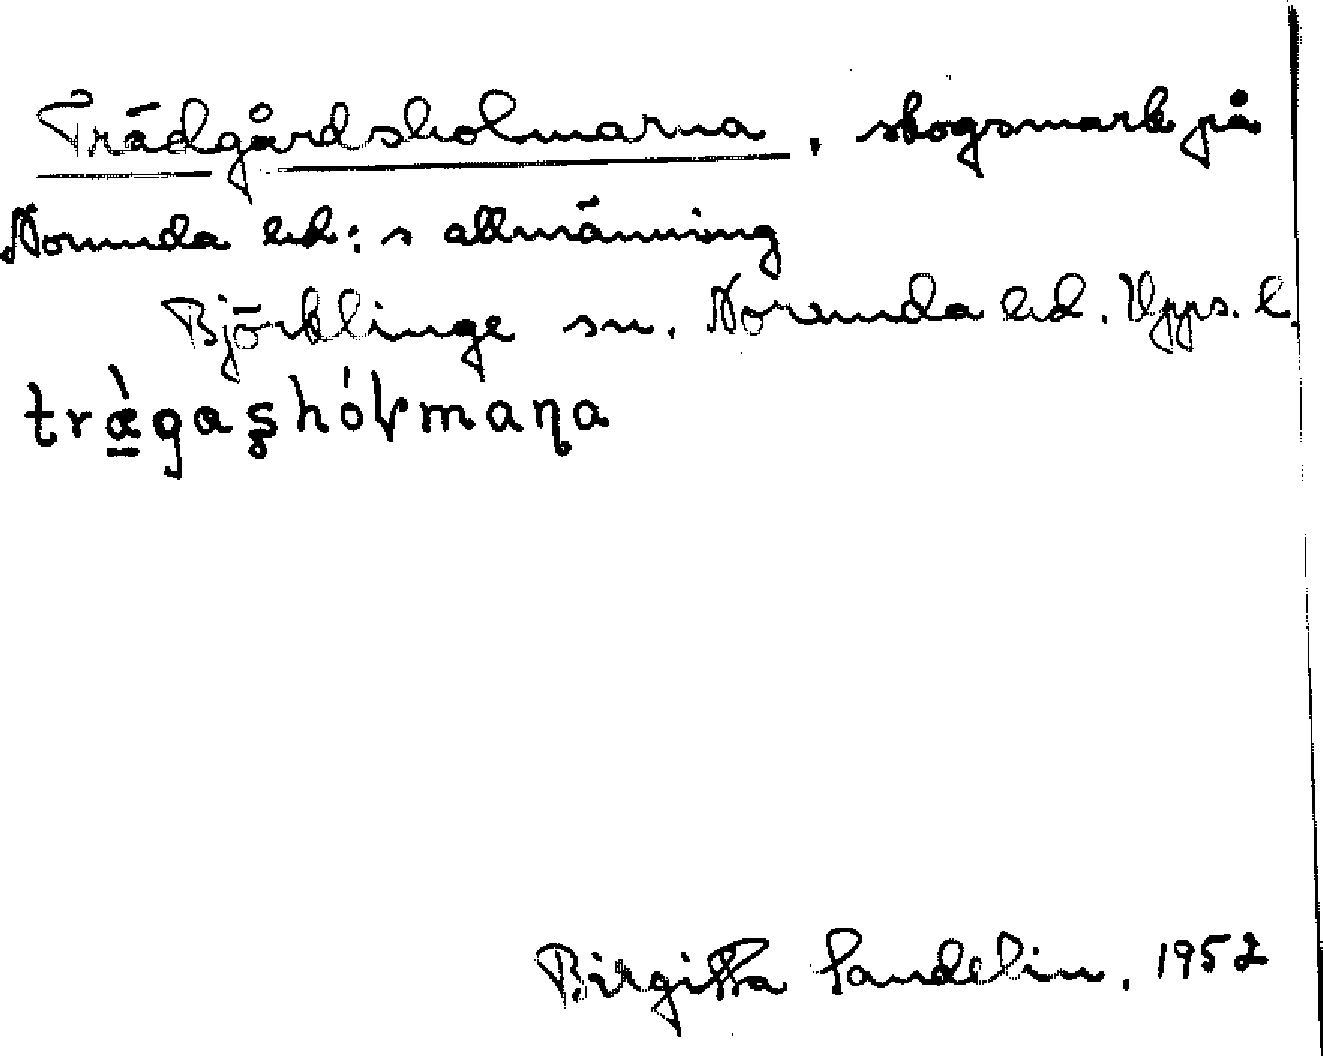 Trädgårdsholmarna, skogsmark på
Norunda hd:s allmänning
Björklinge sn. Norunda hd. Upps. l.
træ̀gaʂhóɽmaɳa
Birgitta Sandelin, 1952